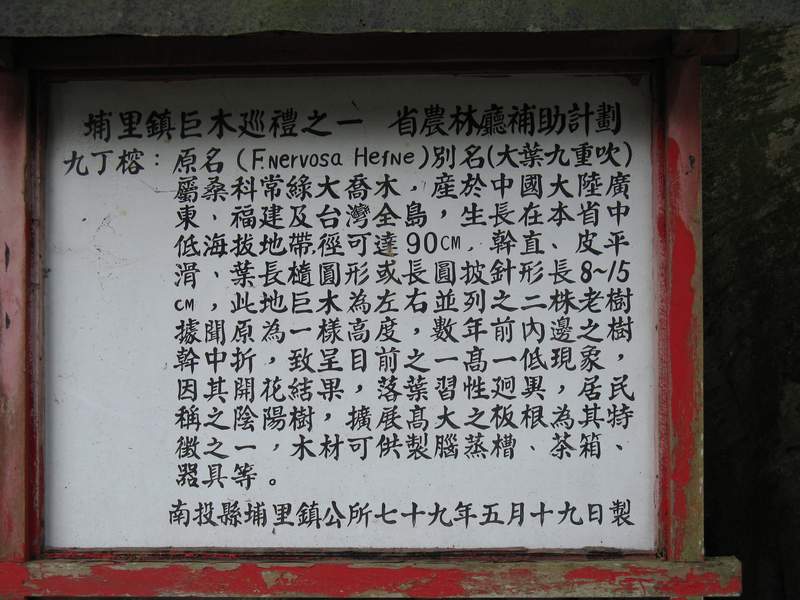 埔里鎮巨木巡禮之一　省農林廳補助計劃
九丁榕：原名(F.nervosa Heyne)別名(大葉九重吹)
屬桑科常綠大喬木，產於中國大陸廣
東、福建及台灣全島，生長在本省中
低海拔地帶，徑可達90CM，幹直、皮平
滑、葉長橢圓形或長圓披針形長8~15
CM，此地巨木為左右並列之二株老樹
據聞原為一樣高度，數年前內邊之樹
幹中折，致呈目前之一高一低現象，
因其開花結果，落葉習性迥異，居民
稱之陰陽樹，擴展高大之板根為其特
徵之一，木材可供製腦蒸槽、茶箱、
器具等。
南投縣埔里鎮公所七十九年五月十九日製